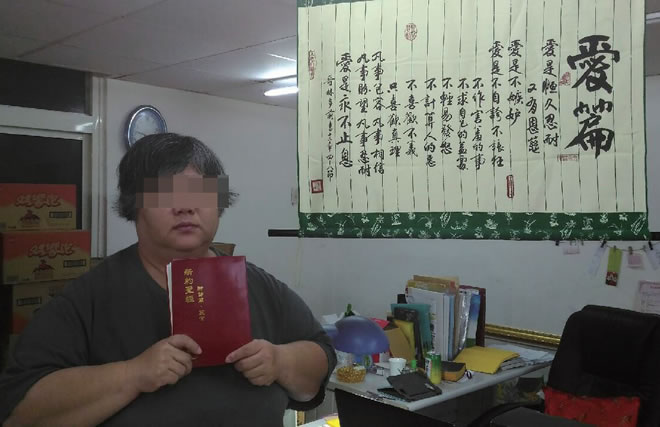 愛篇
愛是恆久忍耐
又有恩慈
愛是不嫉妒
愛是不自誇不張狂
不作害羞的事
不求自己的益處
不輕易發怒
不計算人的惡
不喜歡不義
只喜歡真理
凡事包容 凡事相信
凡事盼望 凡事忍耐
愛是永不止息
新約聖經
附詩篇 箴言